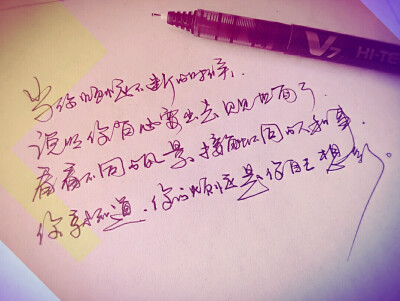 V7 HI-TE
当你烦恼不断的时候,
说明你有必要出去见见世面了,
看看不同的风景,接触不同的人和事.
你就知道,你的烦恼是你自己想